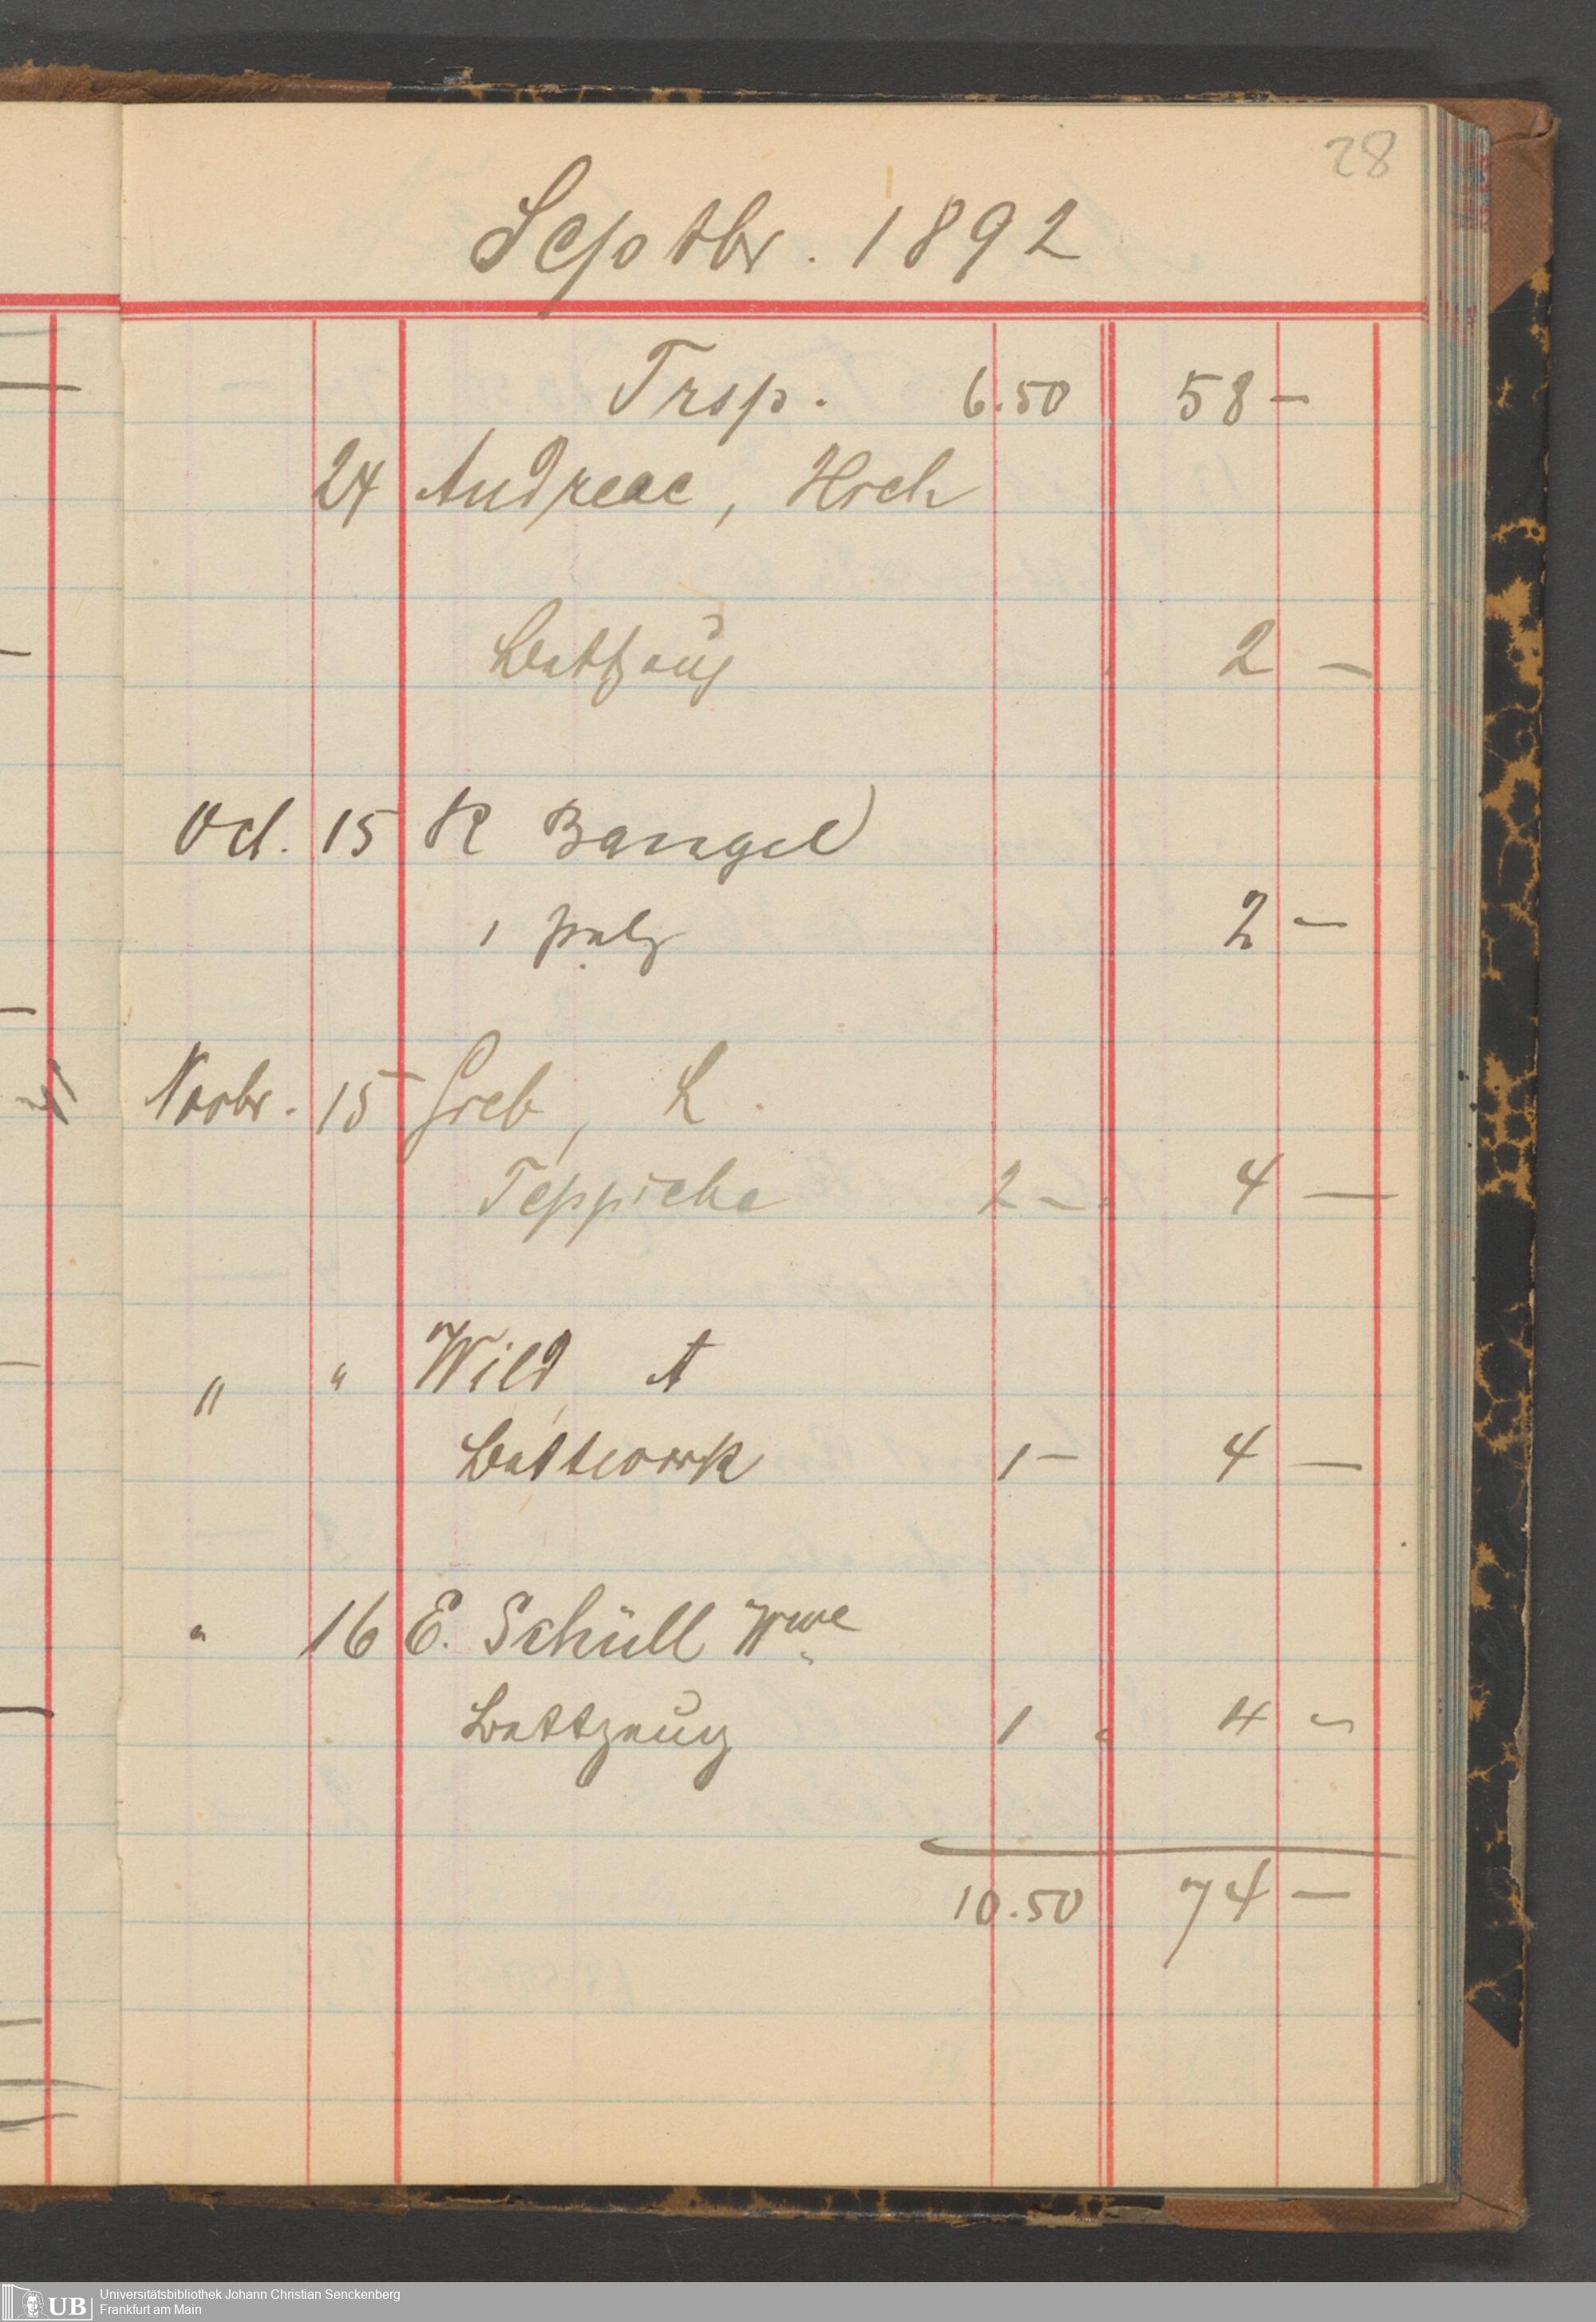 28
Septbr. 1892
Trsp. 6.50 58 –
24 Andreae, Hrch
Bettzeug 2 –
Oct. 15 R Bangel
1 Pelz 2 –
Novbr. 15 Greb, L.
Teppiche 2 – 4 –
" " Wild, A
Bettwerk 1 – 4 –
" 16 E. Schüll Wwe
Bettzeug 1 " 4 –
10.50 74 –
UB
Universitätsbibliothek Johann Christian Senckenberg
Frankfurt am Main